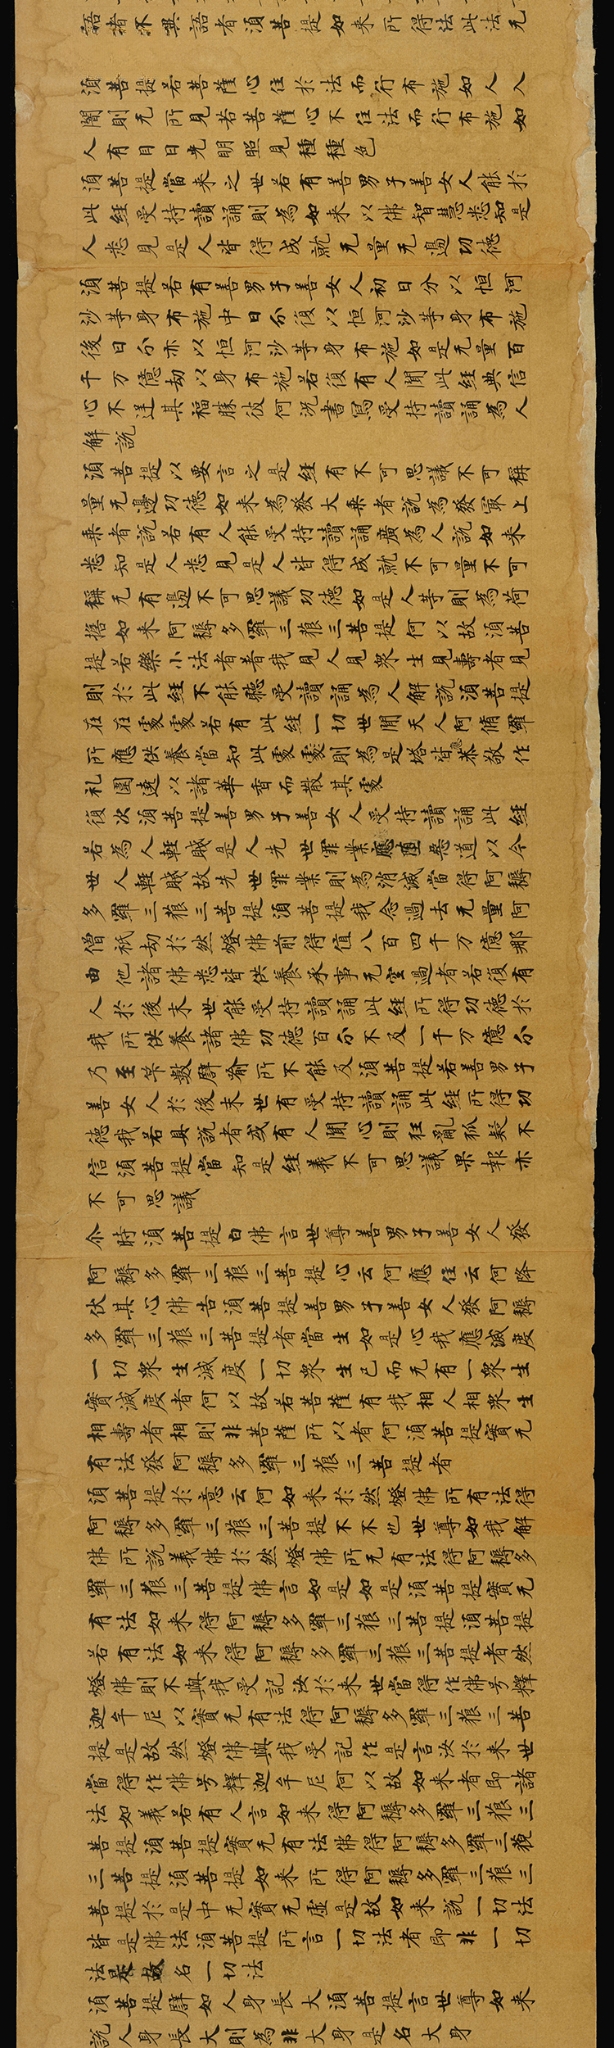 語者不異語者湏菩提如来所得法此法无
湏菩提若菩薩心住於法而行布施如人入
闇則无所見若菩薩心不住法而行布施如
人有目日光明照見種種色
湏菩提當来之世若有善男子善女人能於
此經受持讀誦則為如来以佛智慧悉知是
人悉見是人皆得成就无量无邊功德
湏菩提若有善男子善女人初日分以恒河
沙等身布施中日分復以恒河沙等身布施
後日分亦以恒河沙等身布施如是无量百
千万億劫以身布施若復有人聞此經典信
心不逆其福勝彼何況書寫受持讀誦為人
解說
湏菩提以要言之是經有不可思議不可稱
量无邊功德如来為發大乗者說為發㝡上
乗者說若有人能受持讀誦廣為人說如来
悉知是人悉見是人皆得成就不可量不可
稱无有邊不可思議功德如是人等則為荷
擔如来阿耨多羅三藐三菩提何以故湏菩
提若樂小法者著我見人見衆生見壽者見
則於此經不能聽受讀誦為人解說湏菩提
在在處處若有此經一切世間天人阿脩羅
所應供養當知此處則為是塔皆恭敬作
礼圍遶以諸華香而散其處
復次湏菩提善男子善女人受持讀誦此經
若為人輕賤是人先世罪業應墮惡道以今
世人輕賤故先世罪業則為消滅當得阿耨
多羅三藐三菩提湏菩提我念過去无量阿
僧祇劫於然燈佛前得值八百四千万億那
由他諸佛悉皆供養承事无空過者若復有
人於後末世能受持讀誦此經所得功德於
我所供養諸佛功德百分不及一千万億分
乃至筭數譬喻所不能及湏菩提若善男子
善女人於後末世有受持讀誦此經所得功
德我若具說者或有人聞心則狂亂狐疑不
信湏菩提當知是經義不可思議果報亦
不可思議
尒時湏菩提白佛言世尊善男子善女人發
阿耨多羅三藐三菩提心云何應住云何降
伏其心佛告湏菩提善男子善女人發阿耨
多羅三藐三菩提者當生如是心我應滅度
一切衆生滅度一切衆生已而无有一衆生
實滅度者何以故若菩薩有我相人相衆生
相壽者相則非菩薩所以者何湏菩提實无
有法發阿耨多羅三藐三菩提者
湏菩提於意云何如来於然燈佛所有法得
阿耨多羅三藐三菩提不不也世尊如我解
佛所說義佛於然燈佛所无有法得阿耨多
羅三藐三菩提佛言如是如是湏菩提實无
有法如来得阿耨多羅三藐三菩提湏菩提
若有法如来得阿耨多羅三藐三菩提者然
燈佛則不與我受記汝於来世當得作佛号釋
迦牟尼以實无有法得阿耨多羅三藐三菩
提是故然燈佛與我受記作是言汝於来世
當得作佛号釋迦牟尼何以故如来者即諸
法如義若有人言如来得阿耨多羅三藐三
菩提湏菩提實无有法佛得阿耨多羅三藐
三菩提湏菩提如来所得阿耨多羅三藐三
菩提於是中无實无虛是故如来說一切法
皆是佛法湏菩提所言一切法者即非一切
法是故名一切法
湏菩提譬如人身長大湏菩提言世尊如来
說人身長大則為非大身是名大身